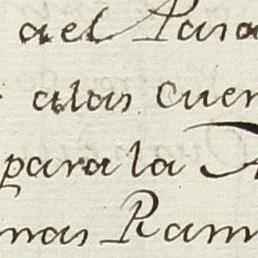 del Para
alas cuen
para la
mas Ram